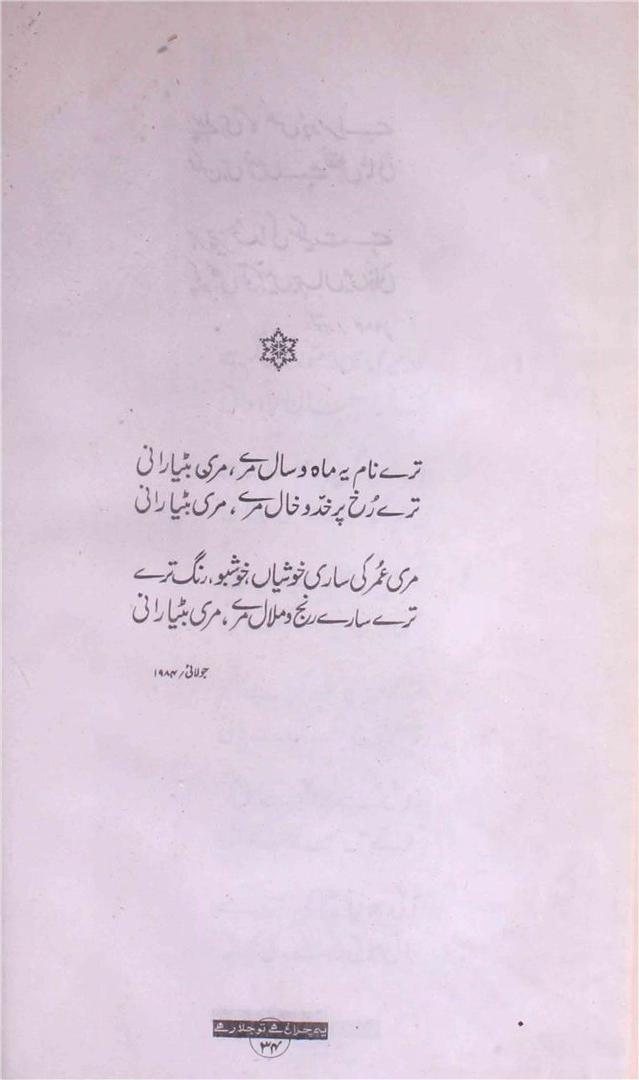 ترے نام یہ ماہ و سال مرے، مری بٹیا رانی
ترے رُخ پر خدّ و خال مرے، مری بٹیا رانی
مری عمُر کی ساری خوشیاں، خوشبو، رنگ ترے
ترے سارے رنج و ملال مرے، مری بٹیا رانی
جولائی / ۱۹۸۴
یہ چراغ ہے تو جلا رہے
۳۴